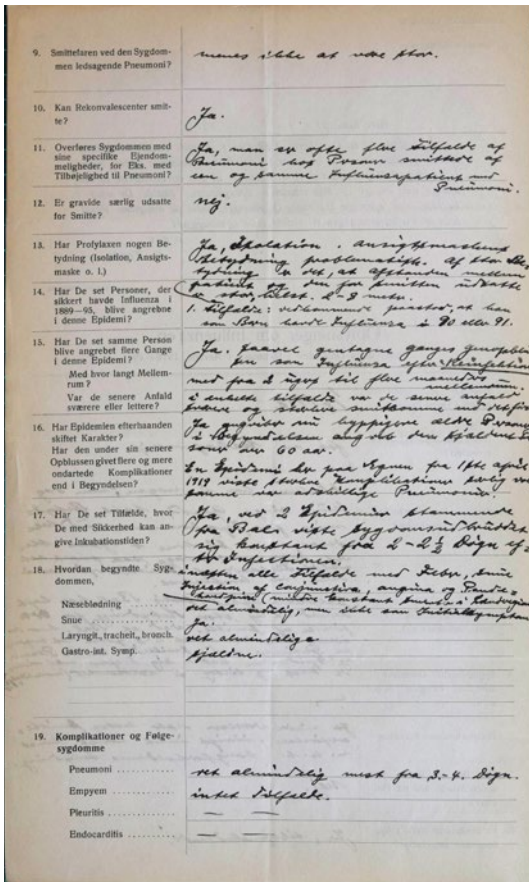 9. Smittefaren ved den Sygdom-
men ledsagende Pneumoni?
menes ikke at være stor.
10. Kan Rekonvalescenter smit-
te?
Ja.
11. Overføres Sygdommen med
sine specifike Ejendom-
meligheder, for Eks. med
Tilbøjelighed til Pneumoni?
Ja, man ser ofte flere Tilfælde af
Pneumoni hos Personer smittede af
een og samme Influenzapatient med
Pneumoni.
12. Er gravide særlig udsatte
for Smitte?
nej.
13. Har Profylaxen nogen Be-
tydning (Isolation, Ansigts-
maske o. l.)
Ja, Isolation. Ansigtsmaskens
Betydning problematisk. Af stor Be-
tydning er det, at afstanden mellem
patient og den for smitten udsatte
er stor, helst 2-3 metr.
14. Har De set Personer, der
sikkert havde Influenza i
1889—95, blive angrebne
i denne Epidemi?
1. Tilfælde: vedkommende paastod, at han
som Barn havde Influenza i 90 eller 91.
15. Har De set samme Person
blive angrebet flere Gange
i denne Epidemi?
Med hvor langt Mellem-
rum?
Var de senere Anfald
sværere eller lettere?
Ja. saavel gentagne ganges
som Influenza efter Reinfektion
med fra 2 uger til flere maaneders
mellemrum.
i enkelte tilfælde var de senere anfald
sværere og stærkere smitsomme end
16. Har Epidemien efterhaanden
skiftet Karakter?
Har den under sin senere
Opblussen givet flere og mere
ondartede Komplikationer
end i Begyndelsen?
Ja angriber nu hyppigere ældre Personer
i Begyndelsen angreb den sjældent
soner over 60 aar.
En Epidemi her paa Egnen fra 1ste april
1919 viste stærke Komplikationer særlig
samme var adskillige Pneumonier.
17. Har De set Tilfælde, hvor
De med Sikkerhed kan an-
give Inkubationstiden?
Ja, ved 2 Epidemier stammende
fra Bal viste sygdomsudbruddet
sig konstant fra 2-2½ Døgn ef-
ter Infektionen.
18. Hvordan begyndte Syg-
dommen,
i næsten alle Tilfælde med Feber,
Injektion af conjunctiva, angina og Pande-
hovedpine (mindre konstant
Næseblødning
ret almindelig, men ikke som Initialsymptom
Snue
ja.
Laryngit., tracheit., bronch.
ret almindelige
Gastro-int. Symp.
sjældne.
19. Komplikationer og Følge-
sygdomme
Pneumoni
ret almindelig mest fra 3.-4. Døgn.
Empyem
intet Tilfælde.
Pleuritis
— —
Endocarditis
— —